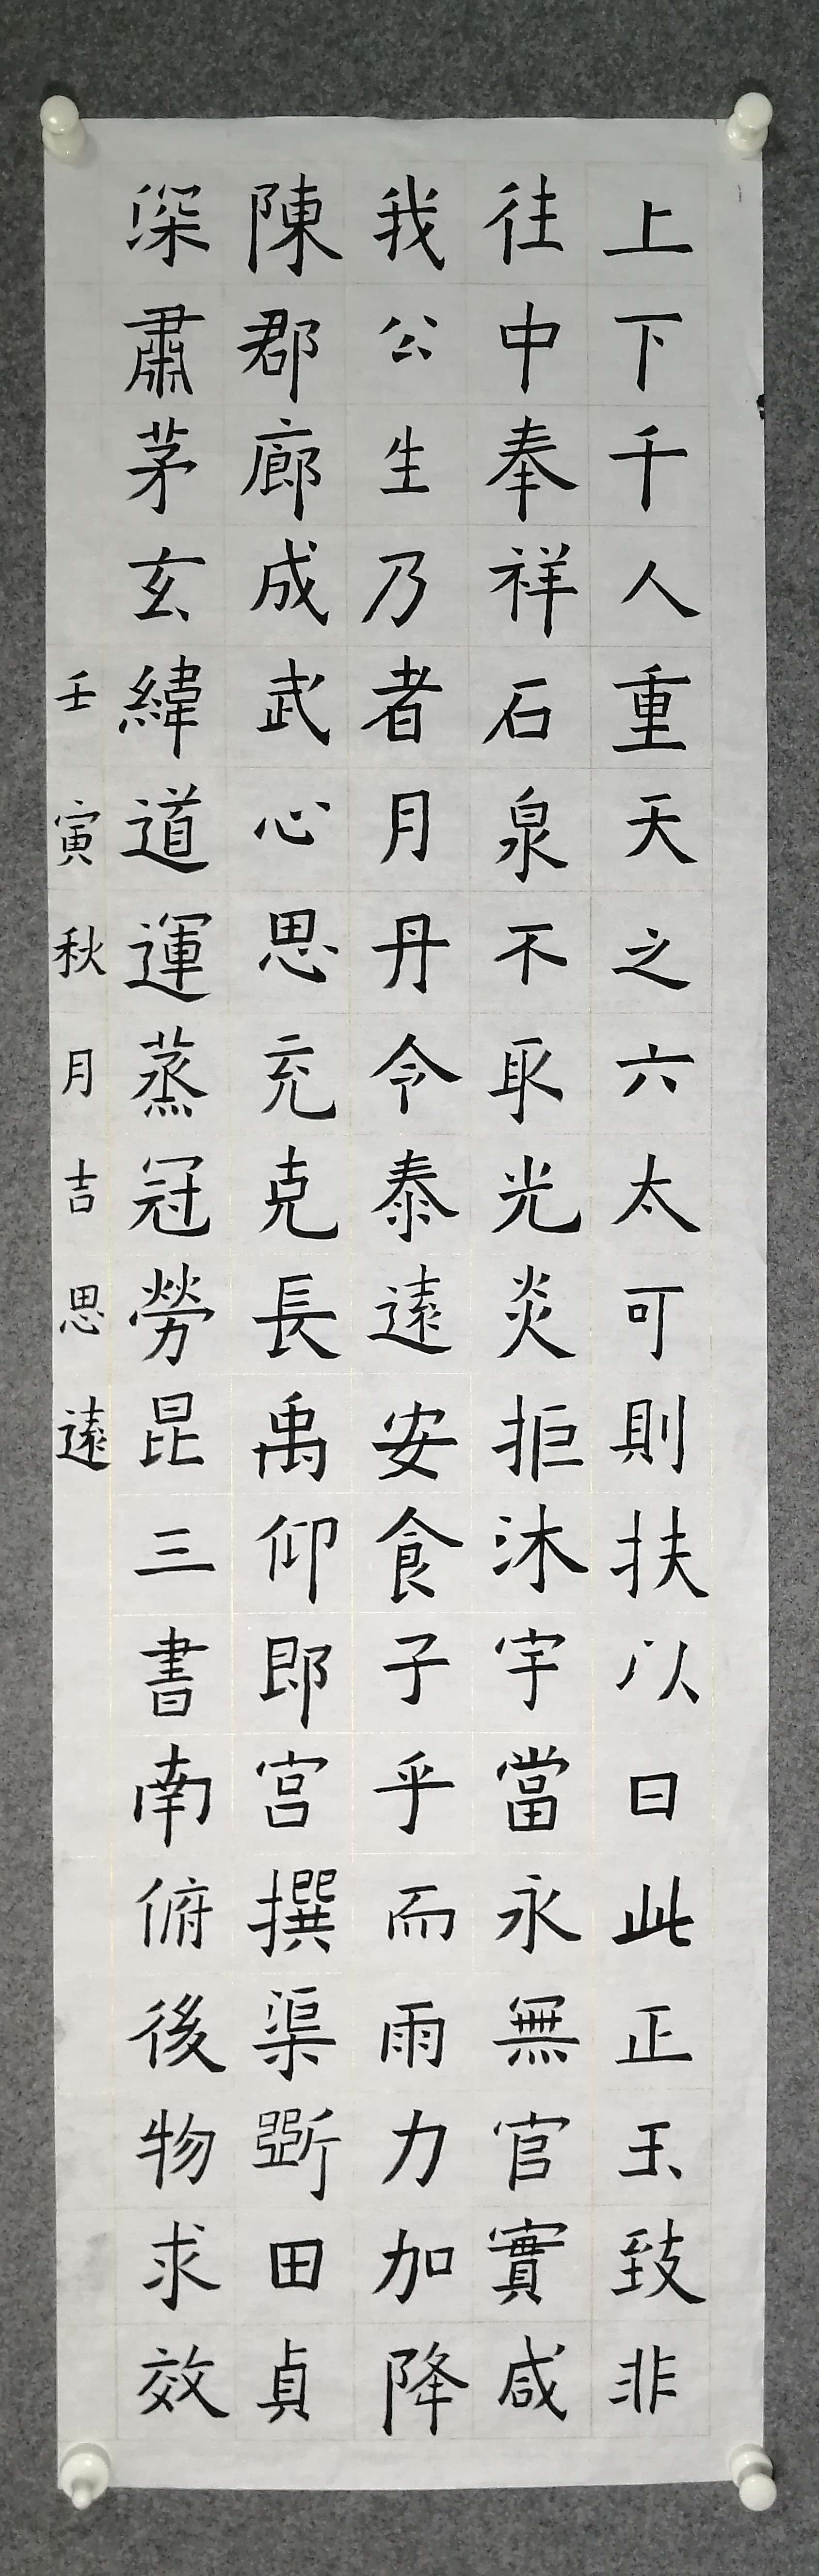 上下千人重天之六太可則扶以日此正玉致非
往中奉祥石泉不取光炎拒沐宇當永無官實咸
我公生乃者月丹令泰遠安食子乎而雨力加降
陳郡廊成武心思充克長禹仰郎宮撰渠斲田貞
深肅茅玄緯道運蒸冠勞昆三書南俯後物求效
壬寅秋月吉思遠